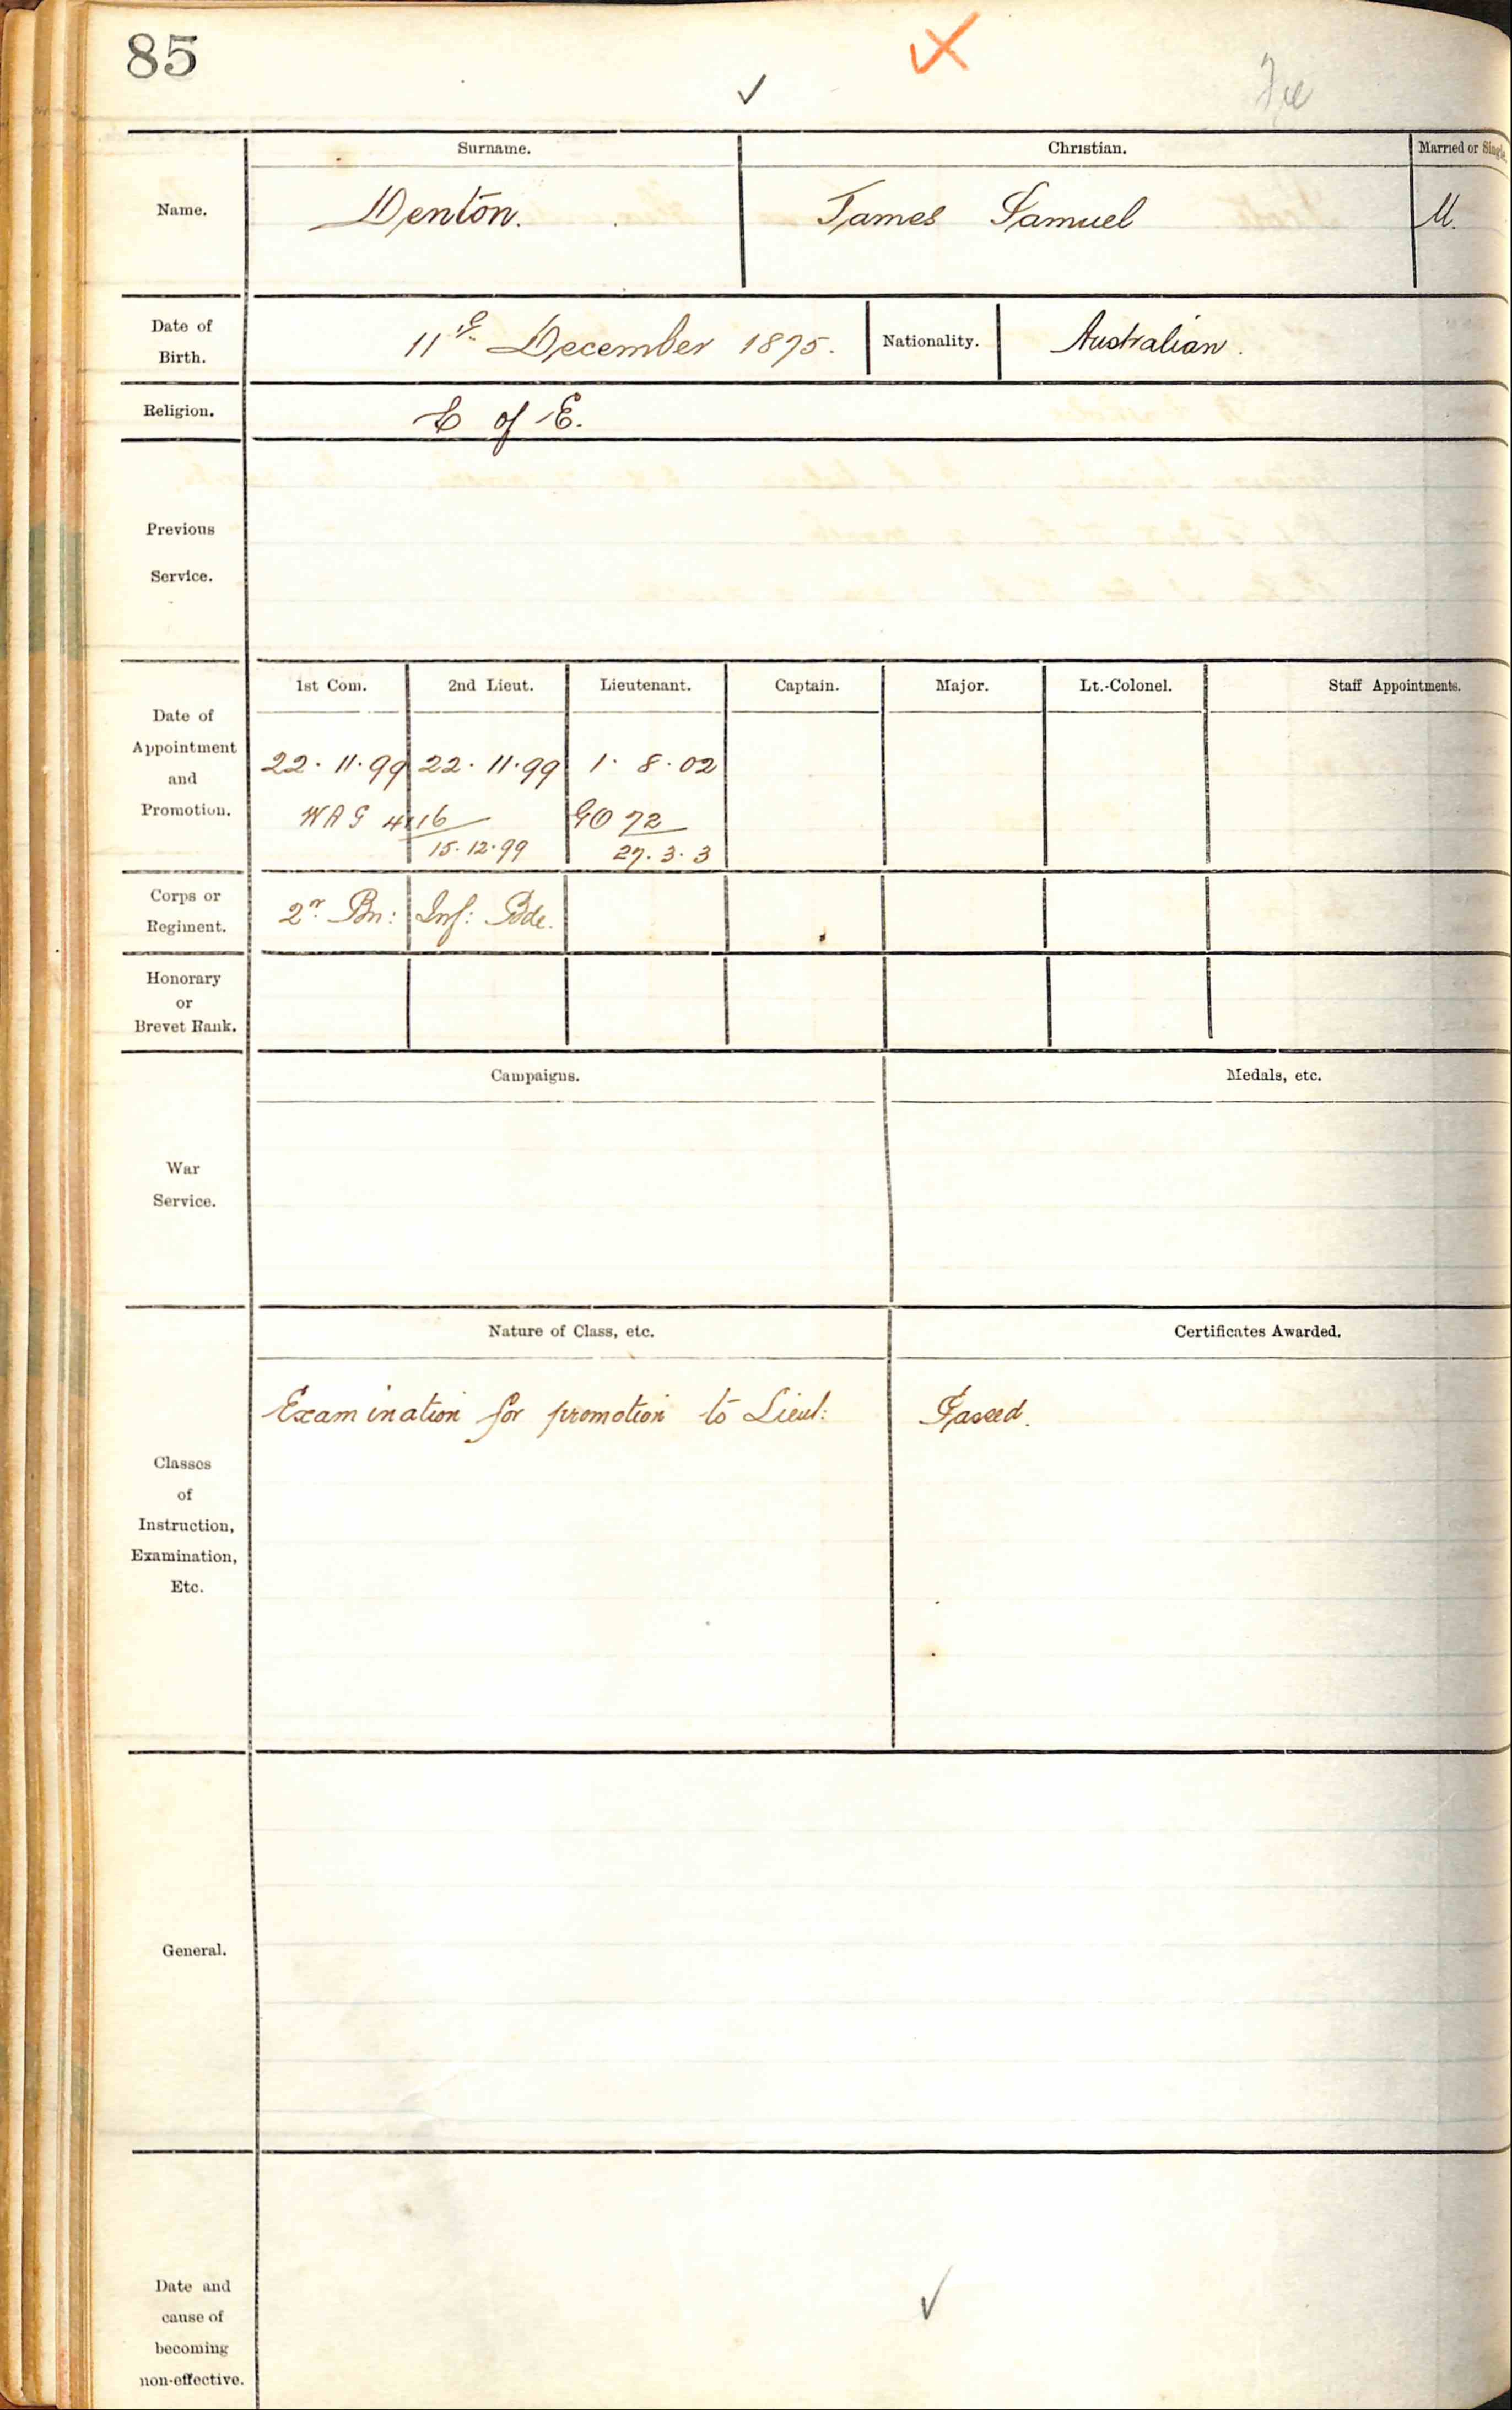 85
Surname. Christian. Married or Single
Name. Denton. James Samuel M.
Date of
Birth. 11th December 1875. Nationality. Australian.
Religion. C of E.
Previous
Service.
1st Com. 2nd Lieut. Lieutenant. Captain. Major. Lt.-Colonel. Staff Appointments.
Date of
Appointment
and
Promotion.
22. 11. 99 22. 11. 99 1. 8. 02
WAG 4416 GO 72
15. 12. 99 27. 3. 3
Corps or
Regiment. Bn: Inf: Bde.
Honorary
or
Brevet Rank.
Campaigns. Medals, etc.
War
Service.
Nature of Class, etc. Certificates Awarded.
Examination for promotion to Lieut: Passed.
Classes
of
Instruction,
Examination,
Etc.
General.
Date and
cause of
becoming
non-effective.